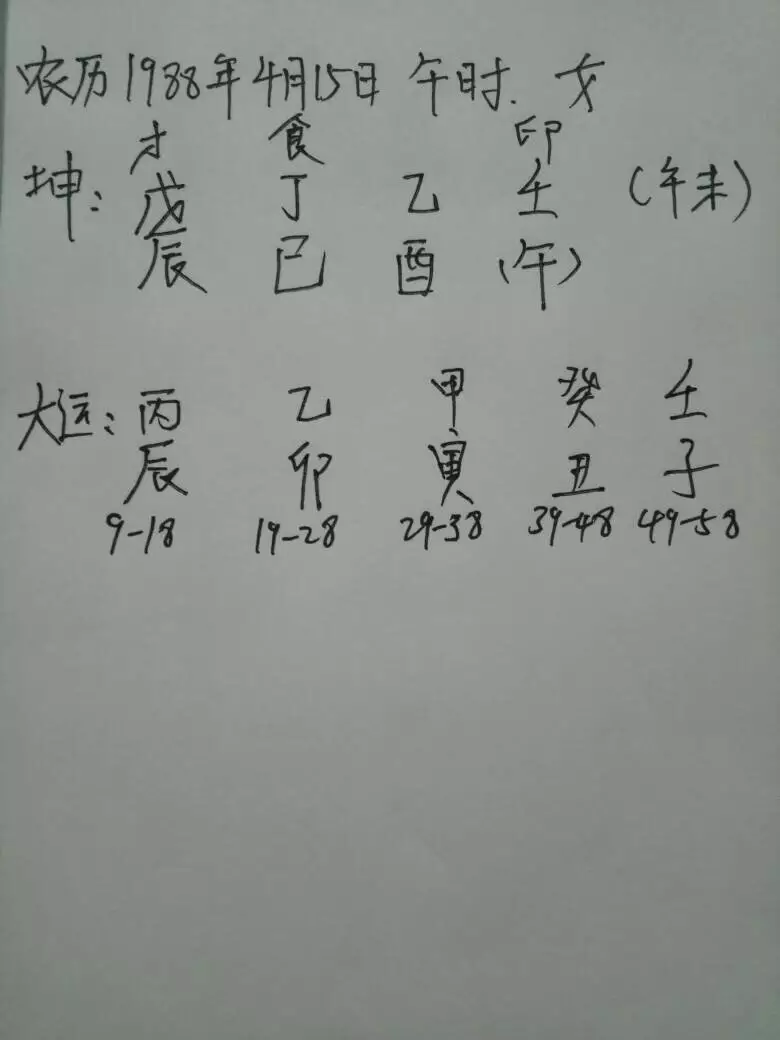 农历1988年4月15日 午时. 女
才 食 印
坤: 戊 丁 乙 壬 (午未)
辰 巳 酉 (午)
大运: 丙 乙 甲 癸 壬
辰 卯 寅 丑 子
9-18 19-28 29-38 39-48 49-58